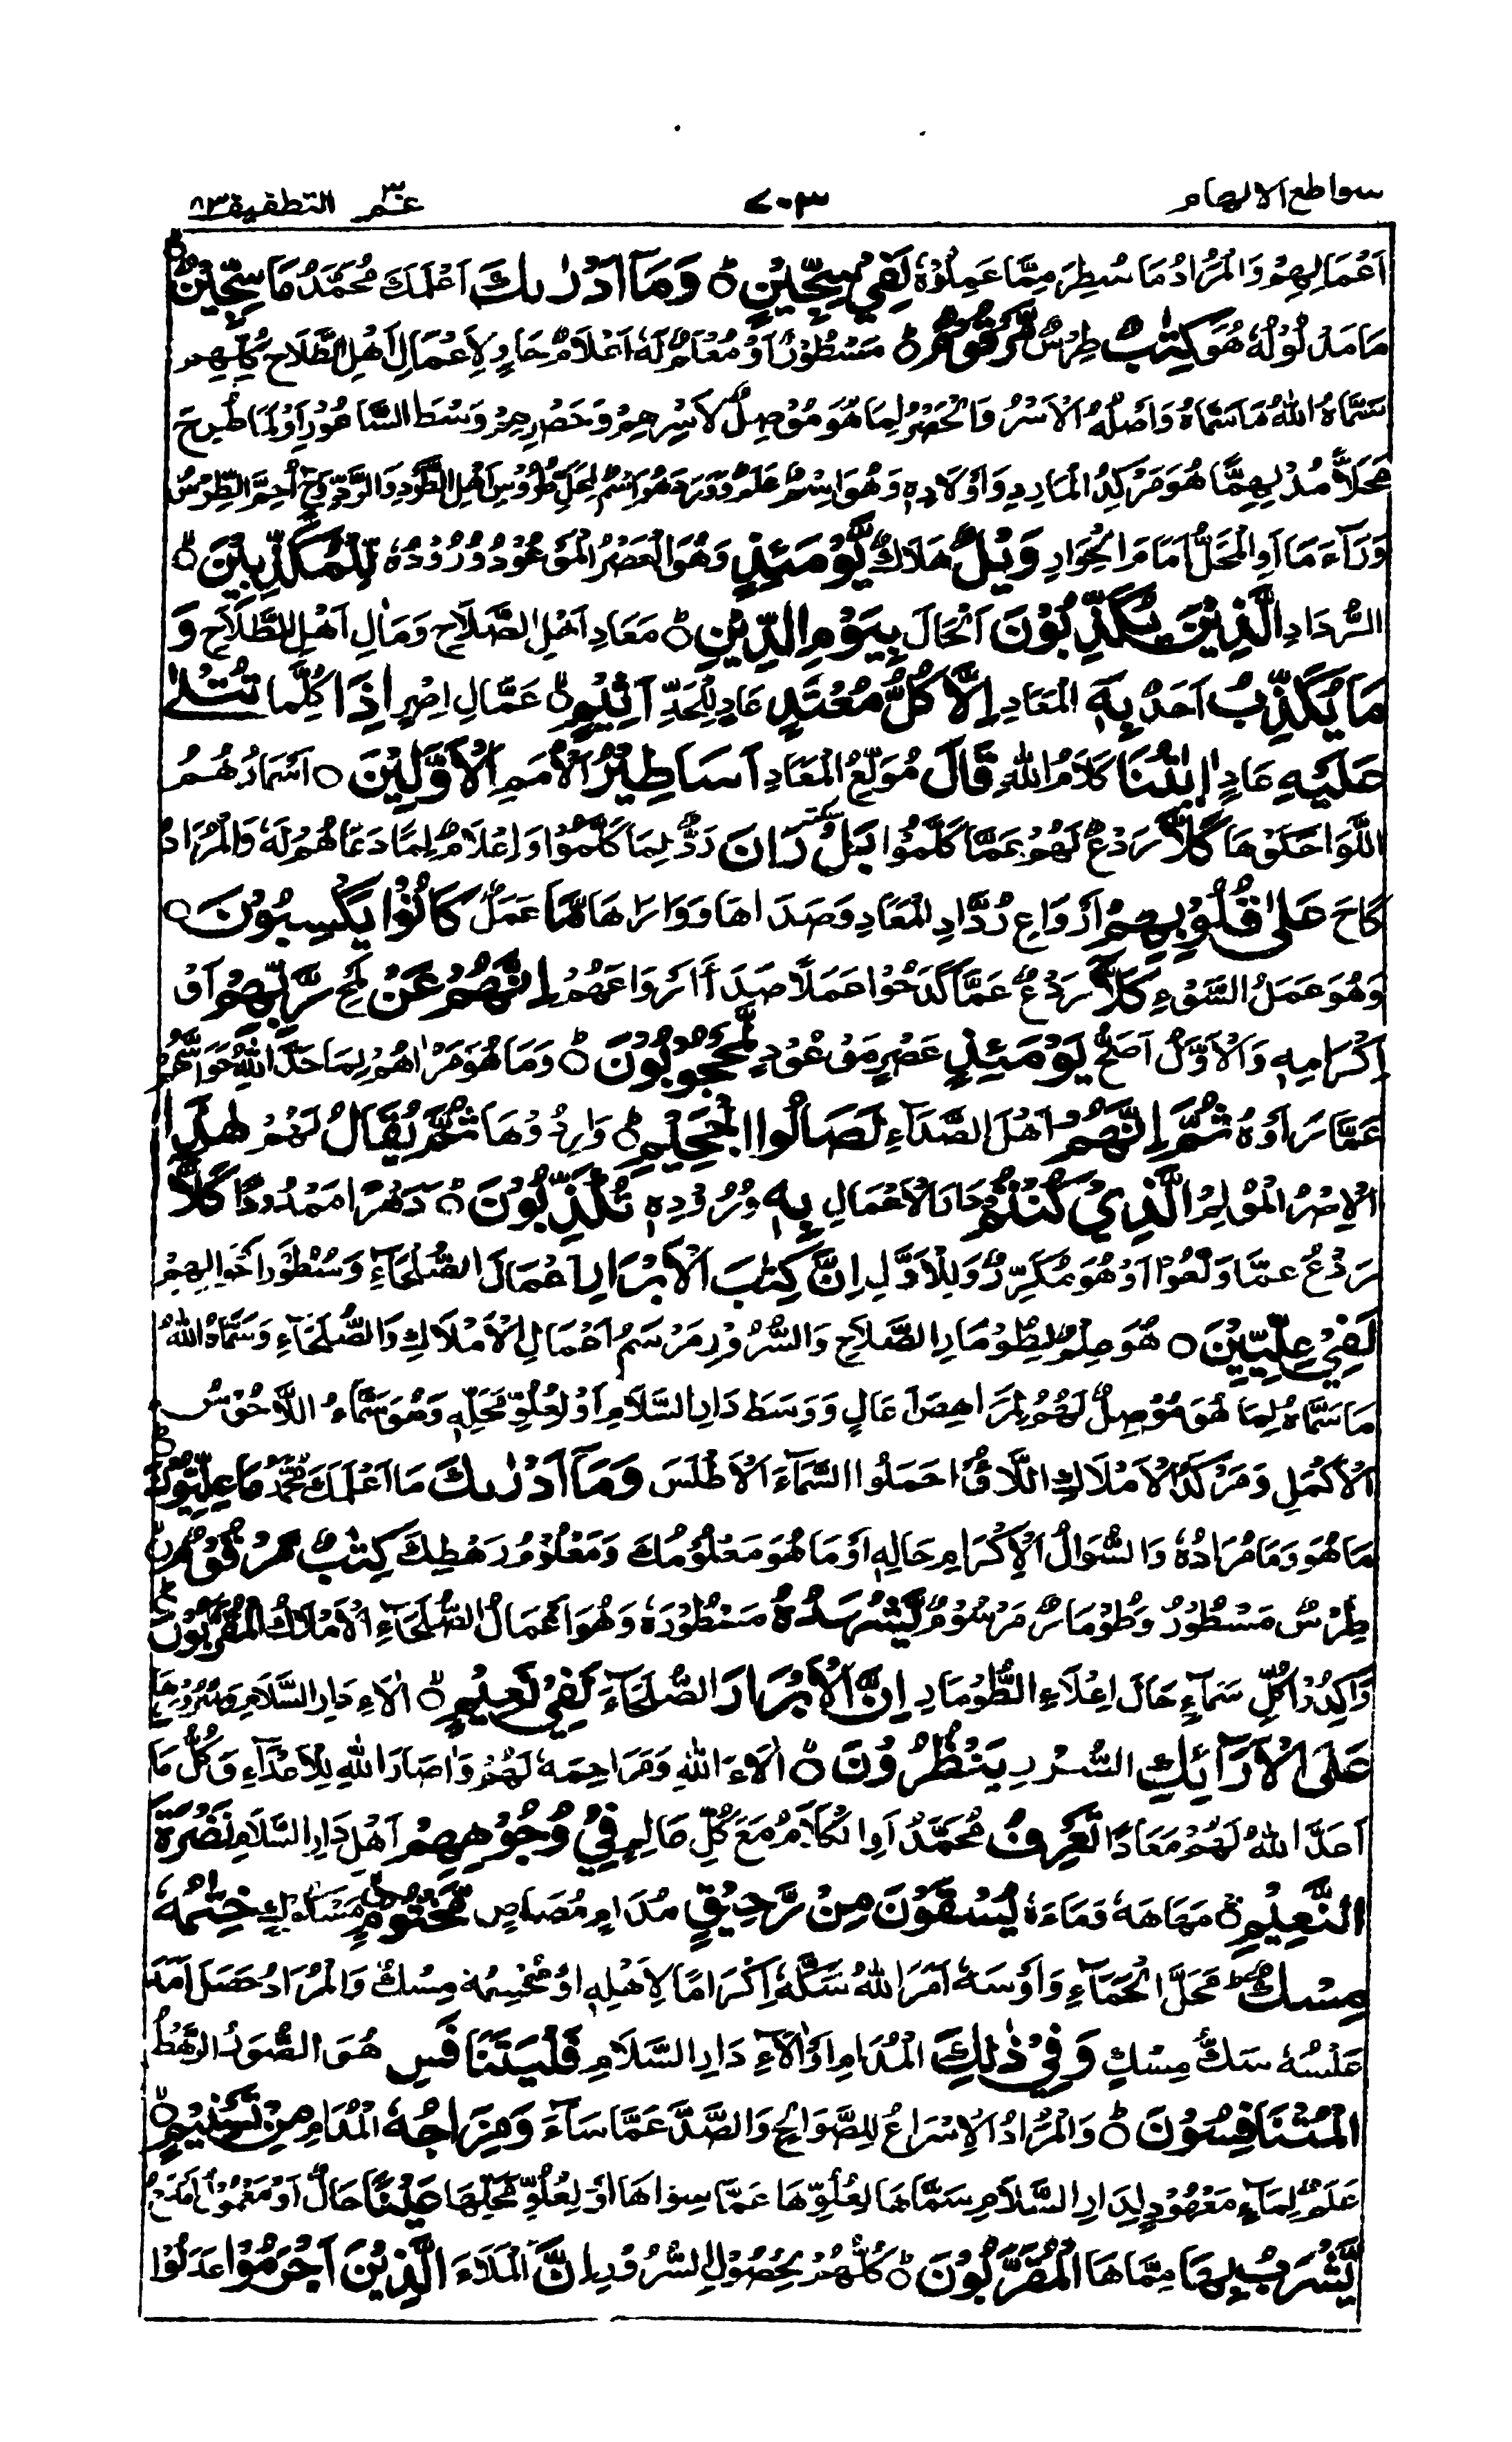 سواطع الالهام ٧٠٣ عمّ ٣٠ التطفيف ٨٣
اَعْمَالِهِمْ وَالْمُرَادُ مَا سُطِرَ مِمَّا عَمِلُوْهُ لَفِيْ سِجِّيْنٍ ○ وَمَآ اَدْرٰىكَ اَعْلَمَكَ مُحَمَّدُ مَا سِجِّيْنٌ
مَا مَدْلُوْلُهٗ هُوَ كِتٰبٌ طِرْسٌ مَّرْقُوْمٌ ○ مَسْطُوْرٌ اَوْ مُعْلَمٌ لَهٗ اَعْلَامٌ حَاوٍ لِاَعْمَالِ اَهْلِ الطَّلَاحِ كُلِّهِمْ
سَمَّاهُ اللّٰهُ مَا سَمَّاهُ وَاَصْلُهُ الْاَسْرُ وَالْحَصْرُ لِمَا هُوَ مُوْصِلٌ لِاَسْرِهِمْ وَحَصْرِهِمْ وَسَطَ السَّاعُوْرِ اَوْ لِمَا طُرِحَ
مَحَلًّا هُوَ مَرْكَدُ الْمَارِدِ وَاَوْلَادِهٖ وَهُوَ اِسْمُ عَلَمٍ وَوَرَدَ هُوَ اِسْمٌ لِمَحَلِّ طُرُوْسِ اَهْلِ
وَرَآءَ مَا اَوِ الْمَحَلُّ اَمَامَ الْحِوَارِ وَيْلٌ هَلَاكٌ يَّوْمَئِذٍ وَهُوَ الْعَصْرُ الْمَوْعُوْدُ وُرُوْدُهٗ لِّلْمُكَذِّبِيْنَ ○
الرُّدَّادِ الَّذِيْنَ يُكَذِّبُوْنَ الْحَالَ بِيَوْمِ الدِّيْنِ ○ مَعَادِ اَهْلِ الصَّلَاحِ وَمَاٰلِ اَهْلِ الطَّلَاحِ وَ
مَا يُكَذِّبُ اَحَدٌ بِهٖٓ الْمَعَادِ اِلَّا كُلُّ مُعْتَدٍ عَادٍ لِلْحَدِّ اَثِيْمٍ ○ عَمَّالِ اِصْرٍ اِذَا كُلَّمَا تُتْلٰى
عَلَيْهِ عَادٍ اٰيٰتُنَا كَلَامُ اللّٰهِ قَالَ مُوَلَّعُ الْمَعَادِ اَسَاطِيْرُ الْاُمَمِ الْاَوَّلِيْنَ ○ اَسْمَارُهُمُ
اللَّوَا حَكَوْهَا كَلَّا رَدْعٌ لَهُمْ عَمَّا كَلَّمُوْا بَلْ سكتة رَانَ رَدٌّ لِمَا كَلَّمُوْا وَاِعْلَامٌ لِمَا دَعَاهُمْ لَهٗ وَالْمُرَادُ
كَاحَ عَلٰى قُلُوْبِهِمْ اَرْوَاعِ رُدَّادِ الْمَعَادِ وَصَدَاهَا وَوَارَاهَا مَّا عَمَلٌ كَانُوْا يَكْسِبُوْنَ ○
وَهُوَ عَمَلُ السُّوْءِ كَلَّآ رَدْعٌ عَمَّا كَدَحُوْا عَمَلًا صَدَأَ اَرْوَاعَهُمْ اِنَّهُمْ عَنْ لَمْحِ رَّبِّهِمْ اَوْ
اِكْرَامِهٖ وَالْاَوَّلُ اَصَحُّ يَوْمَئِذٍ عَصْرٍ مَوْعُوْدٍ لَّمَحْجُوْبُوْنَ ○ وَمَا هُوَ مَرْاٰهُمْ لِمَا حَدَّ اللّٰهُ حَوَاسَّهُمْ
عَمَّا رَاَوْهُ ثُمَّ اِنَّهُمْ اَهْلَ الصَّدَآءِ لَصَالُوا الْجَحِيْمِ ○ وَارِدُوْهَا ثُمَّ يُقَالُ لَهُمْ هٰذَا
الْاِصْرُ الْمُوْلِمُ الَّذِيْ كُنْتُمْ حَالَ الْاَعْمَالِ بِهٖ وُرُوْدِهٖ تُكَذِّبُوْنَ ○ دَهْرًا مَمْدُوْدًا كَلَّآ
رَدْعٌ عَمَّا وَلَعُوْا اَوْ هُوَ مُكَرِّرٌ وَلِلْاَوَّلِ اِنَّ كِتٰبَ الْاَبْرَارِ اَعْمَالَ الصُّلَحَآءِ وَسُطُوْرَ اَحْوَالِهِمْ
لَفِيْ عِلِّيِّيْنَ ○ هُوَ عَلَمٌ لِطُوْمَارِ الصَّلَاحِ وَالسُّرُوْرِ مَرْسَمُ اَعْمَالِ الْاَمْلَاكِ وَالصُّلَحَآءِ وَسَمَّاهُ اللّٰهُ
مَا سَمَّاهُ لِمَا هُوَ مُوْصِلٌ لَهُمْ لِمَرَاهِصَ عَالٍ وَوَسَطَ دَارِ السَّلَامِ اَوْ لِعُلُوِّ مَحَلِّهٖ وَهُوَ سَمَآءُ
الْاَكْمَلِ وَمَرْكَدُ الْاَمْلَاكِ اللَّاؤُا حَمَلُوا السَّمَآءَ الْاَطْلَسَ وَمَآ اَدْرٰىكَ مَا اَعْلَمَكَ مُحَمَّدُ مَا عِلِّيُّوْنَ
مَا هُوَ وَمَا مُرَادُهٗ وَالسُّوَالُ لِاِكْرَامِ حَالِهٖ اَوْ مَا هُوَ مَعْلُوْمُكَ وَمَعْلُوْمُ رَهْطِكَ كِتٰبٌ مَّرْقُوْمٌ
طِرْسٌ مَسْطُوْرٌ وَطُوْمَارٌ مَرْسُوْمٌ يَّشْهَدُهُ مَسْطُوْرَهٗ وَهُوَ اَعْمَالُ الصُّلَحَآءِ الْاَمْلَاكُ الْمُقَرَّبُوْنَ
وَاَكِدُوْا كُلِّ سَمَآءٍ حَالَ اِعْلَاءِ الطُّوْمَارِ اِنَّ الْاَبْرَارَ الصُّلَحَآءَ لَفِيْ نَعِيْمٍ ○ اٰلَاءِ دَارِ السَّلَامِ وَسُرُوْرِهَا
عَلَى الْاَرَآئِكِ السُّرُرِ يَنْظُرُوْنَ ○ اٰلَاءَ اللّٰهِ وَمَرَاحِمَهٗ لَهُمْ وَاِصَارَ اللّٰهِ لِلْاَعْدَآءِ وَكُلَّ مَا
اَعَدَّ اللّٰهُ لَهُمْ مَعَادًا تَعْرِفُ مُحَمَّدُ اَوِ الْكَلَامُ مَعَ كُلِّ عَالِمٍ فِيْ وُجُوْهِهِمْ اَهْلِ دَارِ السَّلَامِ نَضْرَةَ
النَّعِيْمِ ○ مَهَاهَهٗ وَمَاءَهٗ يُسْقَوْنَ مِنْ رَّحِيْقٍ مُدَامٍ مُصَاصٍ مَّخْتُوْمٍ خِتٰمُهٗ
مِسْكٌ مَحَلَّ الْحَمَآءِ وَاَوْسَهٗ اَمَرَ اللّٰهُ سَكَّهٗ اِكْرَامًا لِاَهْلِهٖ اَوْ مِسْكٌ وَالْمُرَادُ حَصَلَ اَمَدَ
عَلْسُهٗ سَكُّ مِسْكٍ وَفِيْ ذٰلِكَ الْمُدَامِ اَوْ اٰلَآءِ دَارِ السَّلَامِ فَلْيَتَنَافَسِ هُوَ الرَّهْطُ
الْمُتَنَافِسُوْنَ ○ وَالْمُرَادُ الْاِسْرَاعُ لِلصَّوَالِحِ وَالصَّدُّ عَمَّا سَآءَ وَمِزَاجُهٗ الْمُدَامِ مِنْ تَسْنِيْمٍ
عَلَمٌ لِمَآءٍ مَعْهُوْدٍ لِدَارِ السَّلَامِ سَمَّاهَا لِعُلُوِّهَا عَمَّا سِوَاهَا اَوْ لِعُلُوِّ مَحَلِّهَا عَيْنًا حَالٌ اَوْ
يَّشْرَبُ بِهَا مِمَّاهَا الْمُقَرَّبُوْنَ ○ كُلُّهُمْ لِحُصُوْلِ السُّرُوْرِ اِنَّ الْمَلَاءَ الَّذِيْنَ اَجْرَمُوْا عَدَلُوْا